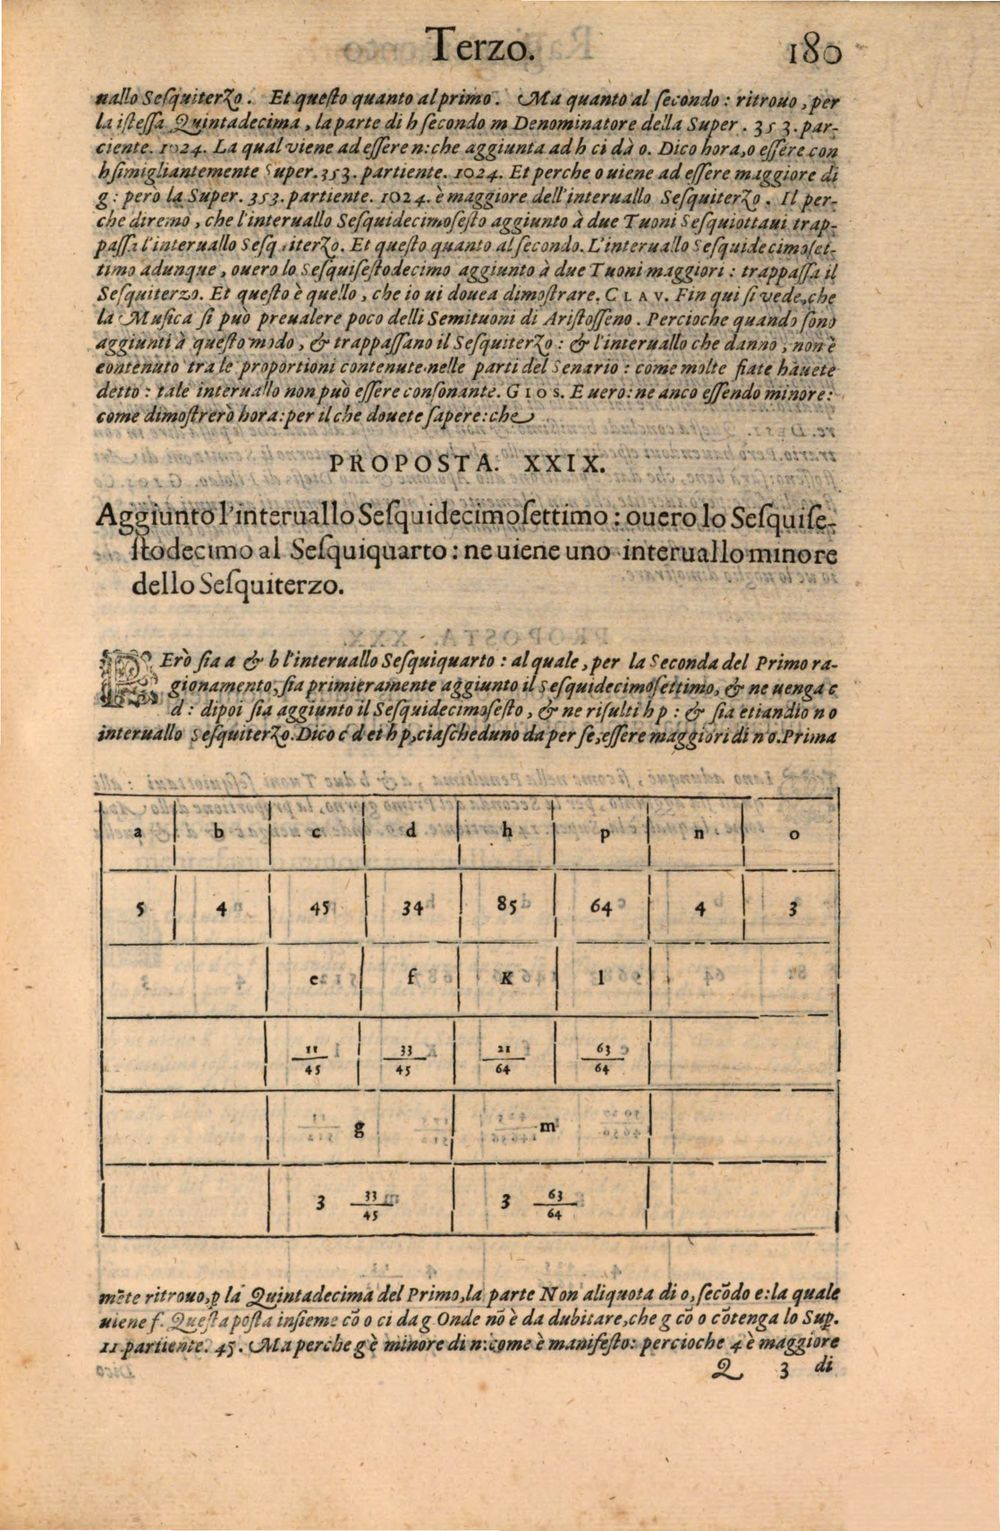 Terzo. 180
uallo Seſquiterzo. Et queſto quanto al primo. Ma quanto al ſecondo: ritrouo, per
la iſteſſa Quintadecima, la parte di h ſecondo m Denominatore della Super. 353. par-
ciente. 1024. La qual viene ad eſſere n: che aggiunta ad h ci dà o. Dico hora, o eſſere con
h ſimigliantemente Super. 353. partiente. 1024. Et perche o uiene ad eſſere maggiore di
g: però la Super. 353. partiente. 1024. è maggiore dell'interuallo Seſquiterzo. Il per-
che diremo, che l'interuallo Seſquidecimoſeſto aggiunto à due Tuoni Seſquiottaui trap-
paſſa l'interuallo Seſquiterzo. Et queſto quanto al ſecondo. L'interuallo Seſquidecimoſet-
timo adunque, ouero lo Seſquiſeſtodecimo aggiunto à due Tuoni maggiori: trappaſſa il
Seſquiterzo. Et queſto è quello, che io ui douea dimoſtrare. CLAV. Fin qui ſi vede, che
la Muſica ſi può preualere poco delli Semituoni di Ariſtoſſeno. Percioche quando ſono
aggiunti à queſto modo, & trappaſſano il Seſquiterzo: & l'interuallo che danno, non è
contenuto tra le proportioni contenute nelle parti del Senario: come molte fiate hauete
detto: tale interuallo non può eſſere conſonante. GIOS. E uero: ne anco eſſendo minore:
come dimoſtrerò hora: per il che douete ſapere: che
PROPOSTA. XXIX.
Aggiunto l'interuallo Seſquidecimoſettimo: ouero lo Seſquiſe-
ſtodecimo al Seſquiquarto: ne uiene uno interuallo minore
dello Seſquiterzo.
PErò ſia a & b l'interuallo Seſquiquarto: al quale, per la Seconda del Primo ra-
gionamento, ſia primieramente aggiunto il Seſquidecimoſettimo, & ne uenga c
d: dipoi ſia aggiunto il Seſquidecimoſeſto, & ne riſulti h p: & ſia etiandio n o
interuallo Seſquiterzo. Dico c d et h p, ciaſcheduno da per ſe, eſſere maggiori di n o. Prima
a b c d h p n o
5 4 45 34 85 64 4 3
e f K l
11/45 33/45 21/64 63/64
g m
3 33/45 3 63/64
mẽte ritrouo, ꝑ la Quintadecima del Primo, la parte Non aliquota di o, ſecõdo e: la quale
uiene f. Queſta poſta inſieme cõ o ci da g. Onde nõ è da dubitare, che g cõ o cõtenga lo Sup.
11. partiente. 45. Ma perche g è minore di n: come è manifeſto: percioche 4 è maggiore
Q 3 di